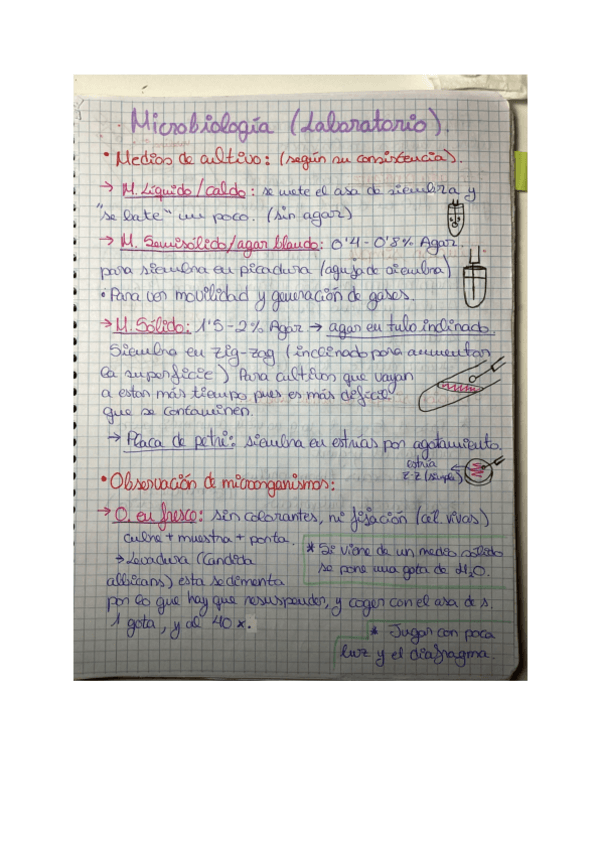 Microbiología (Laboratorio).
• Medios de cultivo: (según su consistencia).
→ M. Líquido / caldo: se mete el asa de siembra y
"se bate" un poco. (sin agar)
→ M. Semisólido/agar blando: 0'4 - 0'8% Agar.
para siembra en picadura (aguja de siembra)
• Para ver movilidad y generación de gases.
→ M. Sólido: 1'5 - 2% Agar → agar en tubo inclinado
Siembra en zig-zag (inclinado para aumentar
la superficie) Para cultivos que vayan
a estar más tiempo pues es más difícil
que se contaminen.
→ Placa de petri: siembra en estrías por agotamiento.
estría
z-z (simple)
• Observación de microorganismos:
→ O. en fresco: sin colorantes, ni fijación (cél. vivas)
cubre + muestra + porta.
* Si viene de un medio sólido
se pone una gota de H2O.
→ Levadura (Candida
albicans) esta sedimenta
por lo que hay que resuspender, y coger con el asa de s.
1 gota, y al 40 x.
* Jugar con poca
luz y el diafragma.